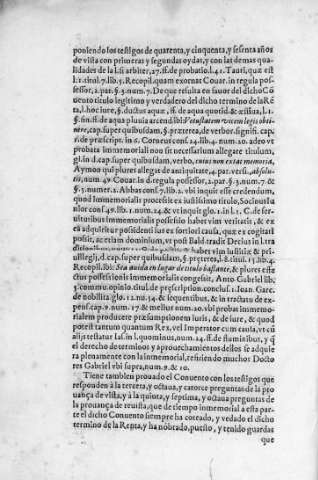 poniendo los testigos de quarenta, y cinquenta, y sesenta años
de vista con primeras y segundas oydas, y con las demas qua-
lidades de la l. si arbiter, 27. ff. de probatio. l. 41. Tauri, quæ est
l. 1. titul. 7. lib. 5. Recopil. quam exornat Couar. in regula pos-
sessor, 2. par. §. 3. num. 7. De que resulta en fauor del dicho Cō
uento titulo legitimo y verdadero del dicho termino de la Re
ta, l. hoc iure, §. ductus aquæ, ff. de aqua quotid. & æstiua, l. 1.
§. fin. ff. de aqua pluuia arcend. ibi Vetustatem vicem legis obti-
nere, cap. super quibusdam, §. præterea, de verbor. signifi. cap.
1. de præscript. in 6. Corneus cons. 14. lib. 4. num. 20. adeo vt
probata immemoriali non sit necessarium allegare titulum,
gl. in d. cap. super quibusdam, verbo, cuius non extat memoria,
Aymon qui plures allegat de antiquitate, 4. par. versi. absolu-
tio, num. 47. Couar. in d. regula possessor, 2. par. §. 3. num. 7. &
§. 5. numer. 2. Abbas cons. 7. lib. 2. vbi inquit esse credendum,
quod immemorialis processit ex iustissimo titulo, Socinus Iu
nior cons. 49. lib. 1. num. 24. vt vinquit glo. 1. in l. 1. C. de ser-
uitutibus immemorialis possessio habet vim veritatis, & ex
ea adquiritur possidenti ius ex
possit, ac etiam dominium, vt post Bald. tradit Decius in l. tra
habet vim iustitiæ & pri-
uilegij, d. cap. super quibusdam, §. præterea, l. 8. titul. 15. lib. 4.
Recopil. ibi: Sea auida en lugar de titulo bastante, & plures effe
ctus possessionis immemorialis congessit, Anto. Gabriel lib.
5. commu. opinio. titul. de præscription. conclus. 1. Joan. Garc.
de nobilita. glo. 12. nu. 54. & sequentibus, & in tractatu de ex-
pens. cap. 9. num. 17 & melius num. 20. vbi probat immemo-
rialem producere præsumptionem iuris, & de iure, & quod
potest tantum quantum Rex, vel Imperator cum causa, vt cū
alijs testatur Ias. in l. quominus, num. 24. ff. de fluminibus, y q̄
el derecho de terminos y aprouechamientos dellos se adquie
ra plenamente con la inmemorial, refiriendo muchos Docto
res Gabriel vbi supra, num. 9. & 10.
Tiene tambien prouado el Conuento con los testigos que
responden à la tercera, y octaua, y catorce preguntas de la pro
uança de vista, y à la quinta, y septima, y octaua preguntas de
la prouança de reuista, que de tiempo inmemorial a esta par-
te el dicho Conuento siempre ha coteado, y vedado el dicho
termino de la Repta, y ha nōbrado, puesto, y tenido guardas
que